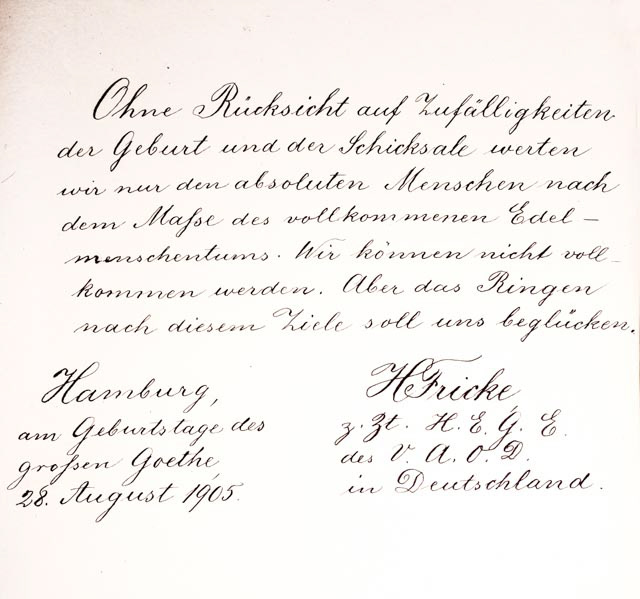 Ohne Rücksicht auf Zufälligkeiten
der Geburt und der Schicksale werten
wir nur den absoluten Menschen nach
dem Maſse des vollkommenen Edel-
menschentums. Wir können nicht voll-
kommen werden. Aber das Ringen
nach diesem Ziele soll uns beglücken.
Hamburg,
am Geburtstage des
groſsen Goethe
28. August 1905.
HFricke
z. Zt. H. E. G. E.
des V. A. O. D.
in Deutschland.